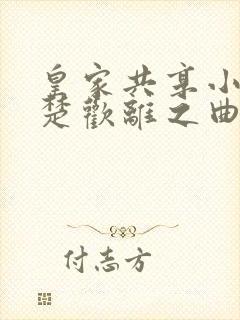 皇家共享小
楚歡離之曲
付志方